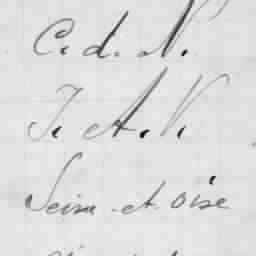 C. d. N.
J. A. V.
Seine et Oise